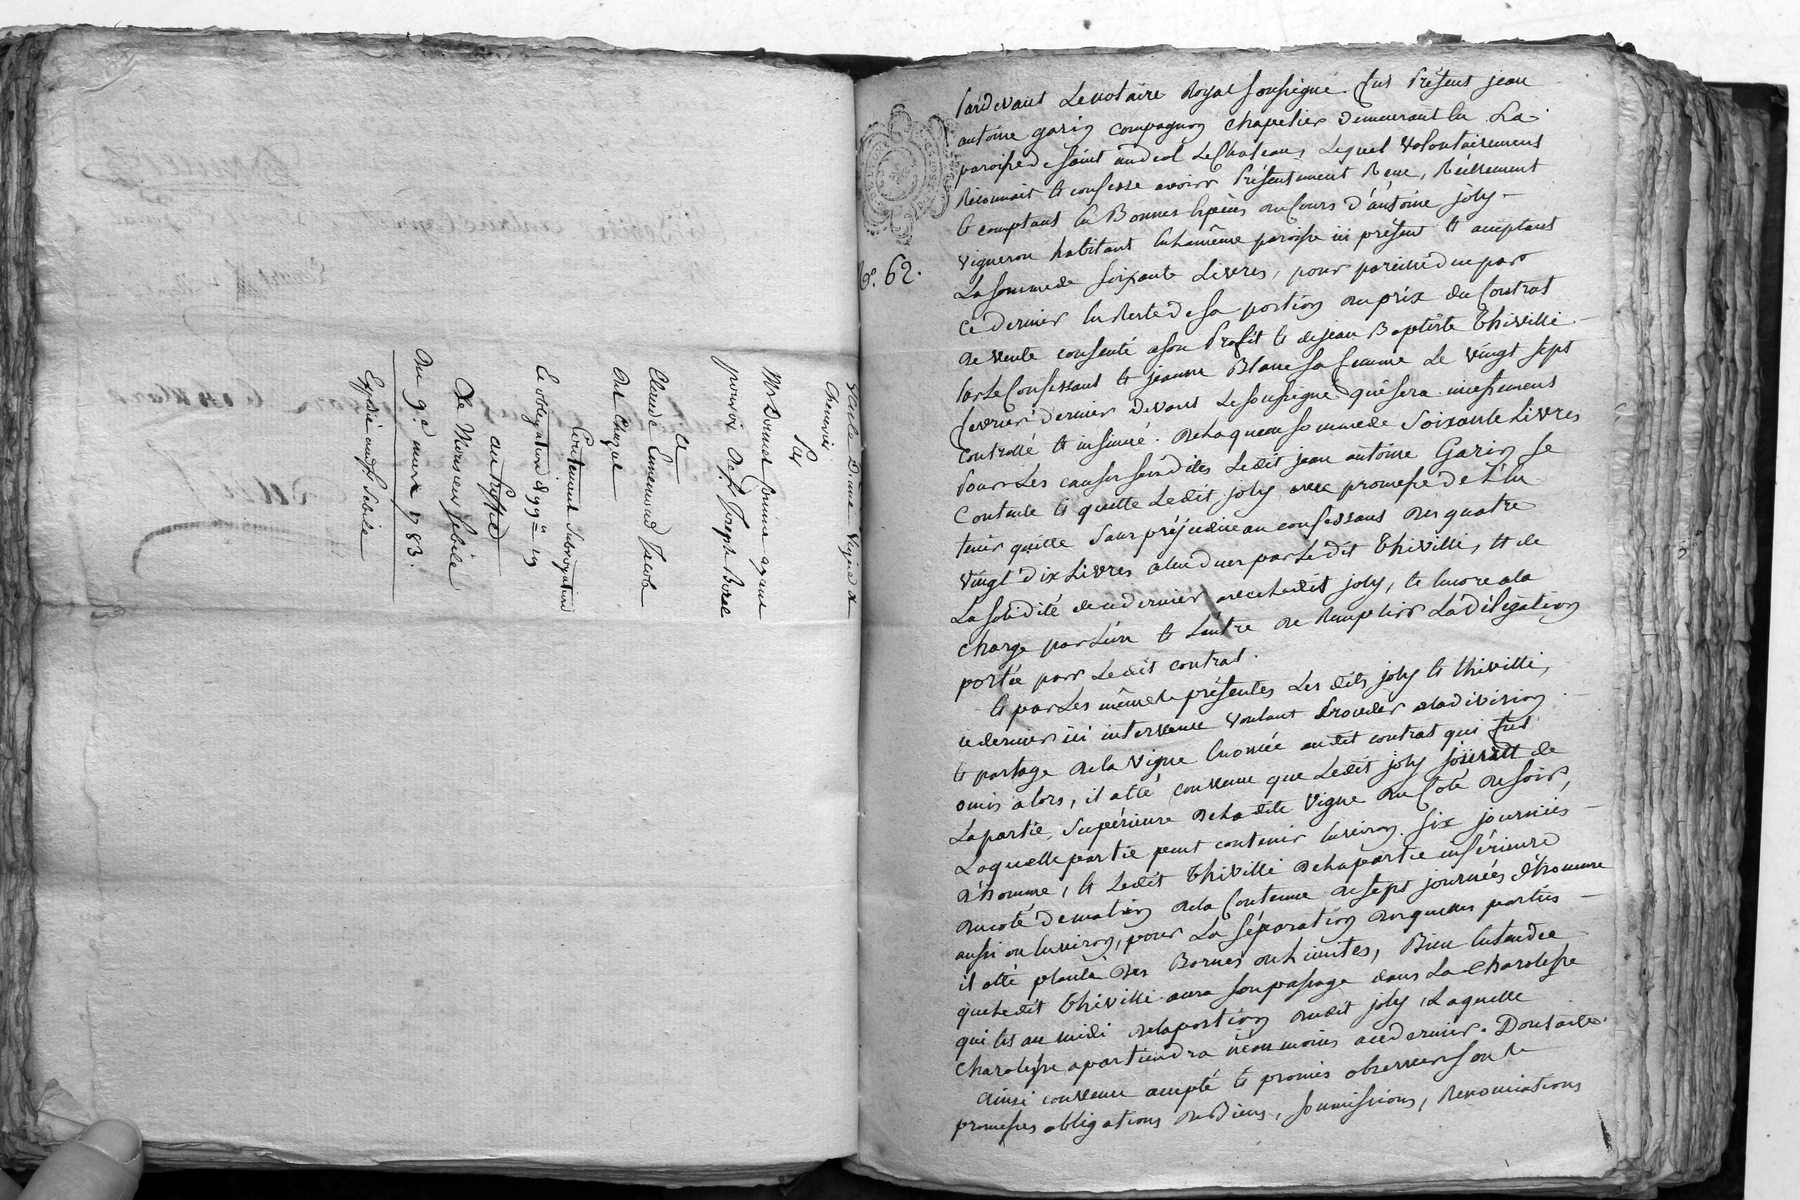 Chenevier
Par
Mr Domet comme ayant
pouvoir de Sr Joseph Borel
et
Claude Emerand Jacob
De Chozal
le obligation
Contenant Subrogation
au profit
De Monsieur Sibile
Du 9e mars 1783.
Expédié audit Sr Sibile
No. 62.
Pardevant Le notaire Royal soussigné. fut Présent jean
antoine garin compagnon chapelier demeurant en La
paroisse de saint andeol Le Chateau, Lequel volontairement
Reconnait et confesse avoir Présentement Reçu, Réellement
et comptant en Bonnes Espèces au Cours d'antoine joly
vigneron habitant en la même paroisse ici présent et acceptant
La somme de soixante Livres, pour pareille due par
ce dernier en Reste de sa portion du prix du Contrat
de vente consenté a son Profit et de jean Baptiste thivilli
Par Le Confessant et jeanne Blanc sa femme Le vingt sept
fevrier dernier devant Le soussigné qui sera incessament
Controllé et insinué. De Laquelle somme de Soixante Livres
Pour Les causes susdites Ledit jean antoine Garin se
Contente et quitte Ledit joly avec promesse de L'en
tenir quitte sans préjudice au confessant des quatre
vingt dix Livres a lui dues par Ledit thivilli, et de
La solidité de ce dernier avec Ledit joly, et encore a la
charge par L'un et L'autre de Remplir La Délégation
portée par Ledit contrat.
et par Les mêmes présentes Les dits joly et thivilli,
ce dernier ici intervenu voulant Proceder a la division
et partage de la vigne Enoncée audit contrat qui fut
omis alors, il a été convenu que Ledit joly jouiroit de
La partie Supérieure de Ladite vigne Du Coté de soir,
Laquelle partie peut contenir environ six journées
d'homme, et Ledit thivilli de la partie inférieure
du coté de matin de la Contenue de sept journées d'homme
aussi ou environ, pour La séparation desquelles parties
il a été planté des Bornes ou Limites, Bien Entendu
que Ledit thivilli aura son passage dans La charoleste
qui est au midi de la portion dudit joly, Laquelle
charoleste apartiendra néanmoins a ce dernier. Dont acte.
Ainsi convenu accepté et promis observer sous le
promesses obligations de Biens, soumissions, Renonciations